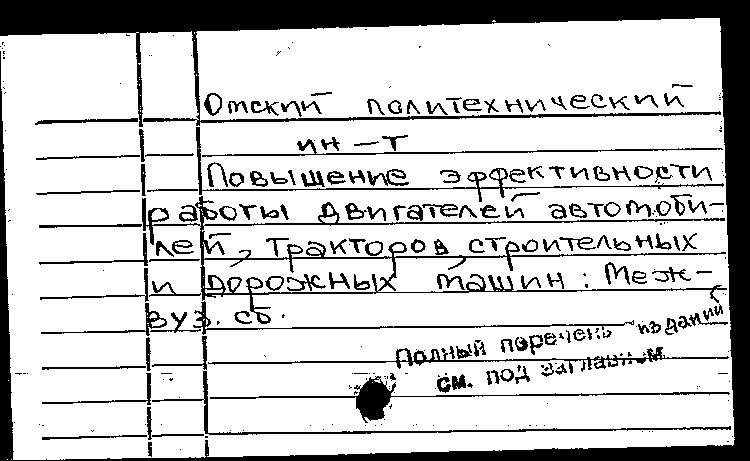 Омский политехнический
ин-т
Повышение эффективности
работы двигателей автомоби-
лей, тракторов, строительных
и дорожных машин: Меж-
вуз. сб.
Полный перечень изданий
см. под заглавием